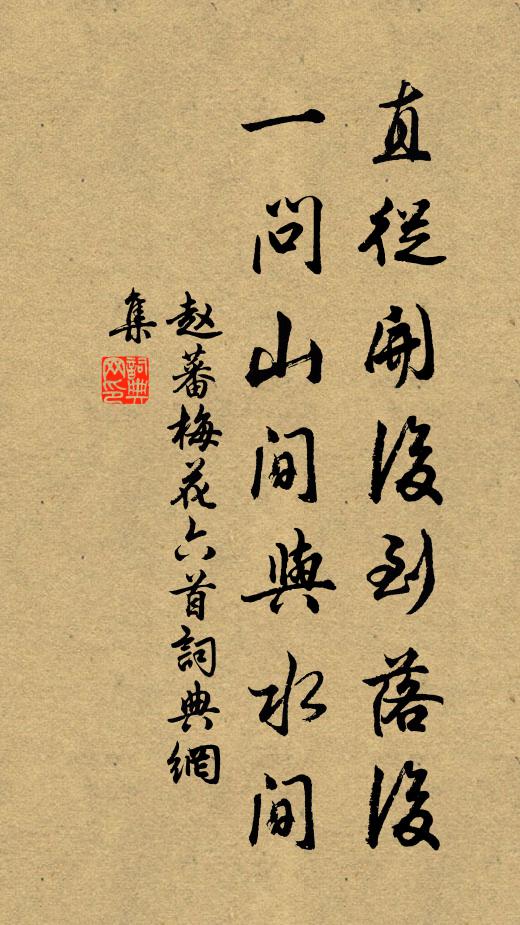 直從開後到落後
一問山間與水間
赵蕃梅花六首詞典網
集
詞典網印